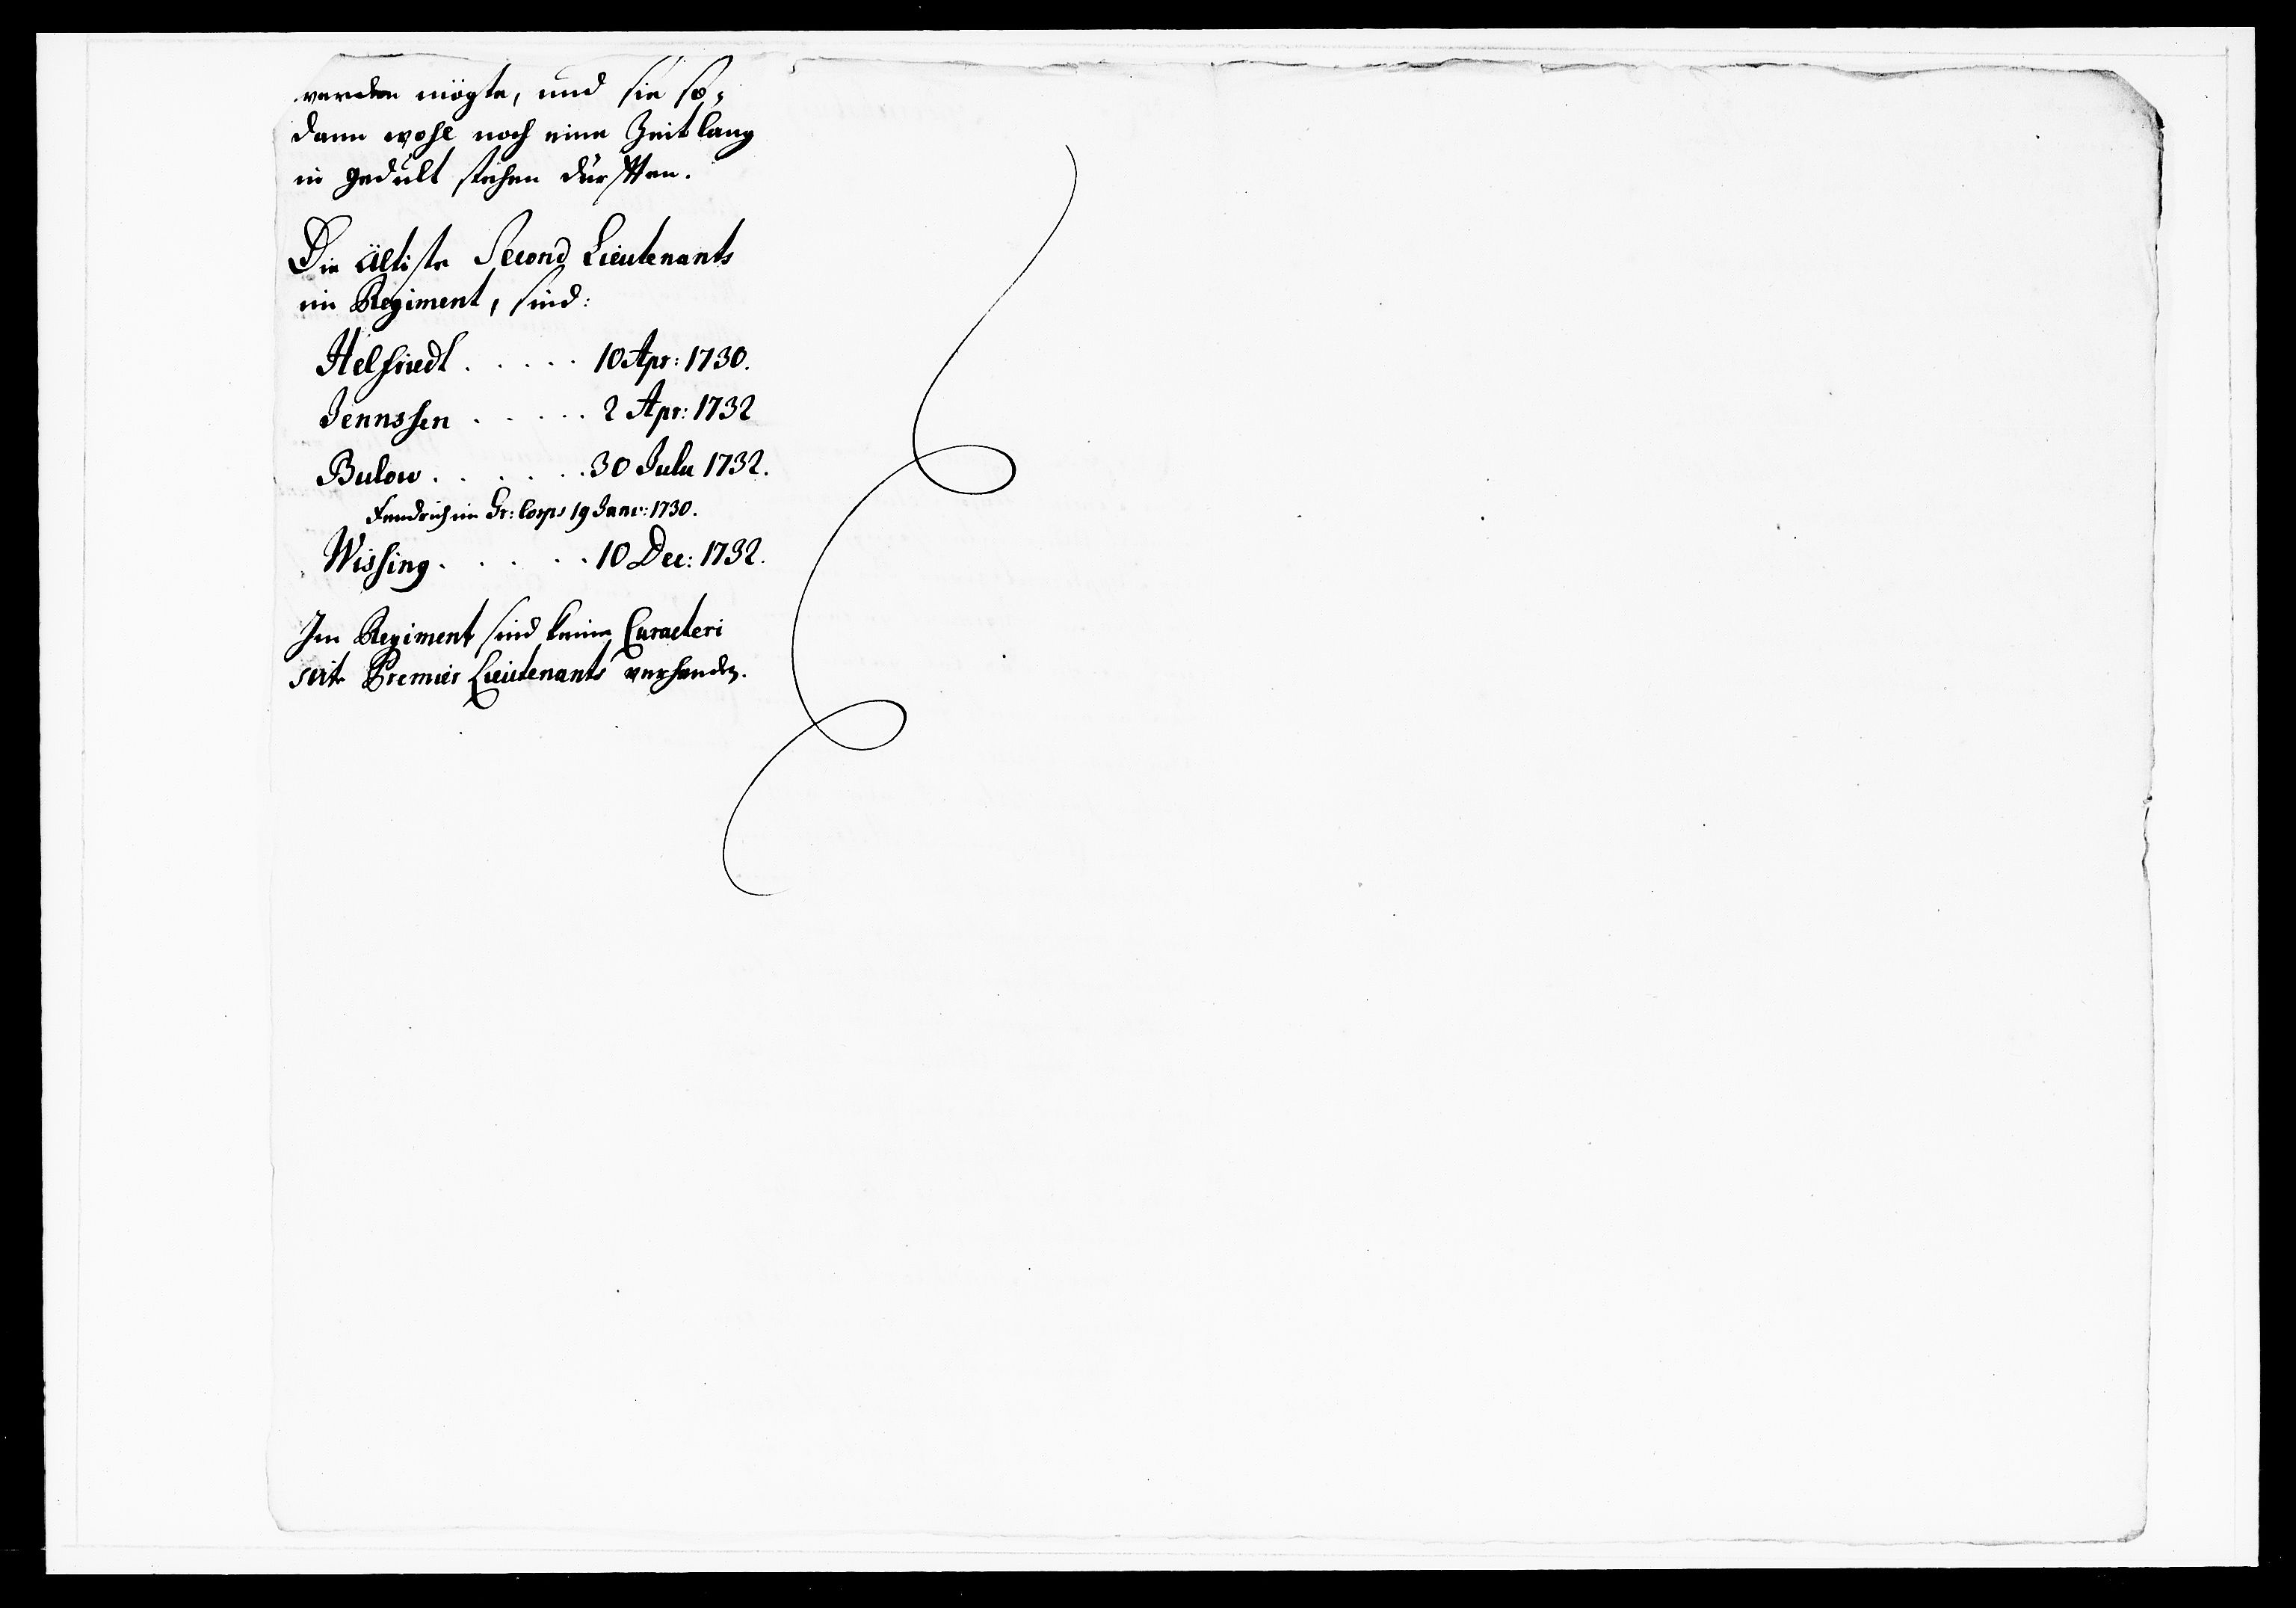 werden mögte, und sie so-
dann wohl noch eine Zeitlang
in gedult stehen dürfften.
Die ältiste Second Lieutenants
im Regiment, sind:
Helfriedt . . . . . 10 Apr: 1730.
Jennssen . . . . . 2 Apr: 1732
Bulow . . . . . . 30 Julii 1732.
Fendrich im Gr: Corps 19 Janv: 1730.
Wissing . . . . . 10 Dec: 1732.
Im Regiment sind keine Caracteri
sirte Premier Lieutenants verhanden.